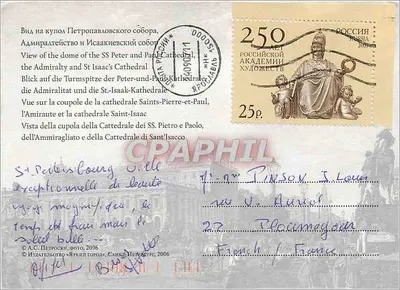 Вид на купол Петропавловского собора,
Адмиралтейство и Исаакиевский собор
View of the dome of the SS Peter and Paul Cathedral,
the Admiralty and St Isaac's Cathedral
Blick auf die Turmspitze der Peter-und-Paul-Kathedrale,
die Admiralität und die St.-Isaak-Kathedrale
Vue sur la coupole de la cathedrale Saints-Pierre-et-Paul,
l'Amiraute et la cathedrale Saint'Isaac
Vista della cupola della Cattedrale dei SS. Pietro e Paolo,
dell'Ammiragliato e della Cattedrale di Sant'Isacco
ПОЧТА РОССИИ
ЯРОСЛАВЛЬ
250
ЛЕТ
РОССИЙСКОЙ АКАДЕМИИ
ХУДОЖЕСТВ
РОССИЯ
25р.
CPAPHIL
St Petersbourg Ville
exceptionnelle de beauté
temps est frais mais le
soleil brille...
PINSON J. Louis
rue
22
French / France
© А.С. Петросян, фото, 2006
© Издательство «Яркий город», Санкт-Петербург, 2006